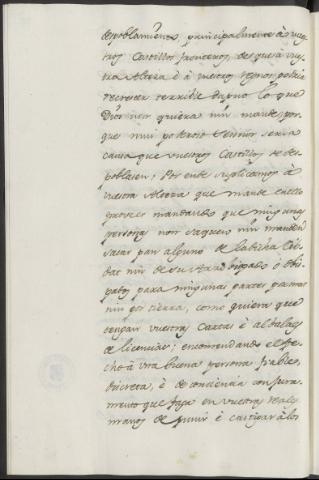 despoblamientos, principalmente à vues
tros Castillos fronteros, de que à vues
tra Alteza è à vuestros regnos podria
recrecer terrible dapno lo que
Dios non quiera nin mande, por
que mui poderoso Sennor seria
causa que vuestros Castillos se des
poblasen; Por ende suplicamos à
vuestra Alteza que mande en ello
proveer mandando que ningunas
personas non saquen nin manden
sacar pan alguno de la dicha Cib
dat nin de su Arzobispado ò Obis
pados para ningunas partes por mar
nin por tierra, como quiera que
tengan vuestras Cartas è albalaes
de licencias; encomendando el fe
cho à una buena persona fiable,
discreta, è de conciencia con jura
mento que faga en vuestras reales
manos de punir è castigar à los